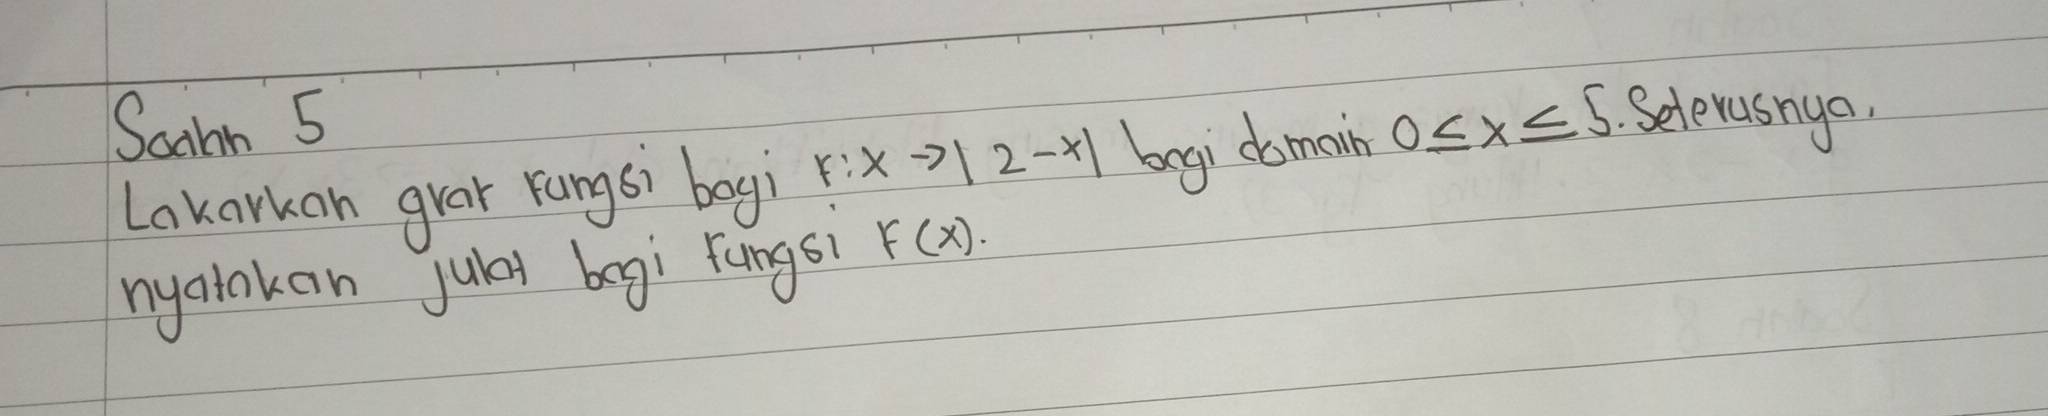 Soalan 5
Lakarkan graf fungsi bagi f:x →|2-x| bagi domain 0≤x≤5. Seterusnya,
nyatakan julat bagi fungsi f(x).